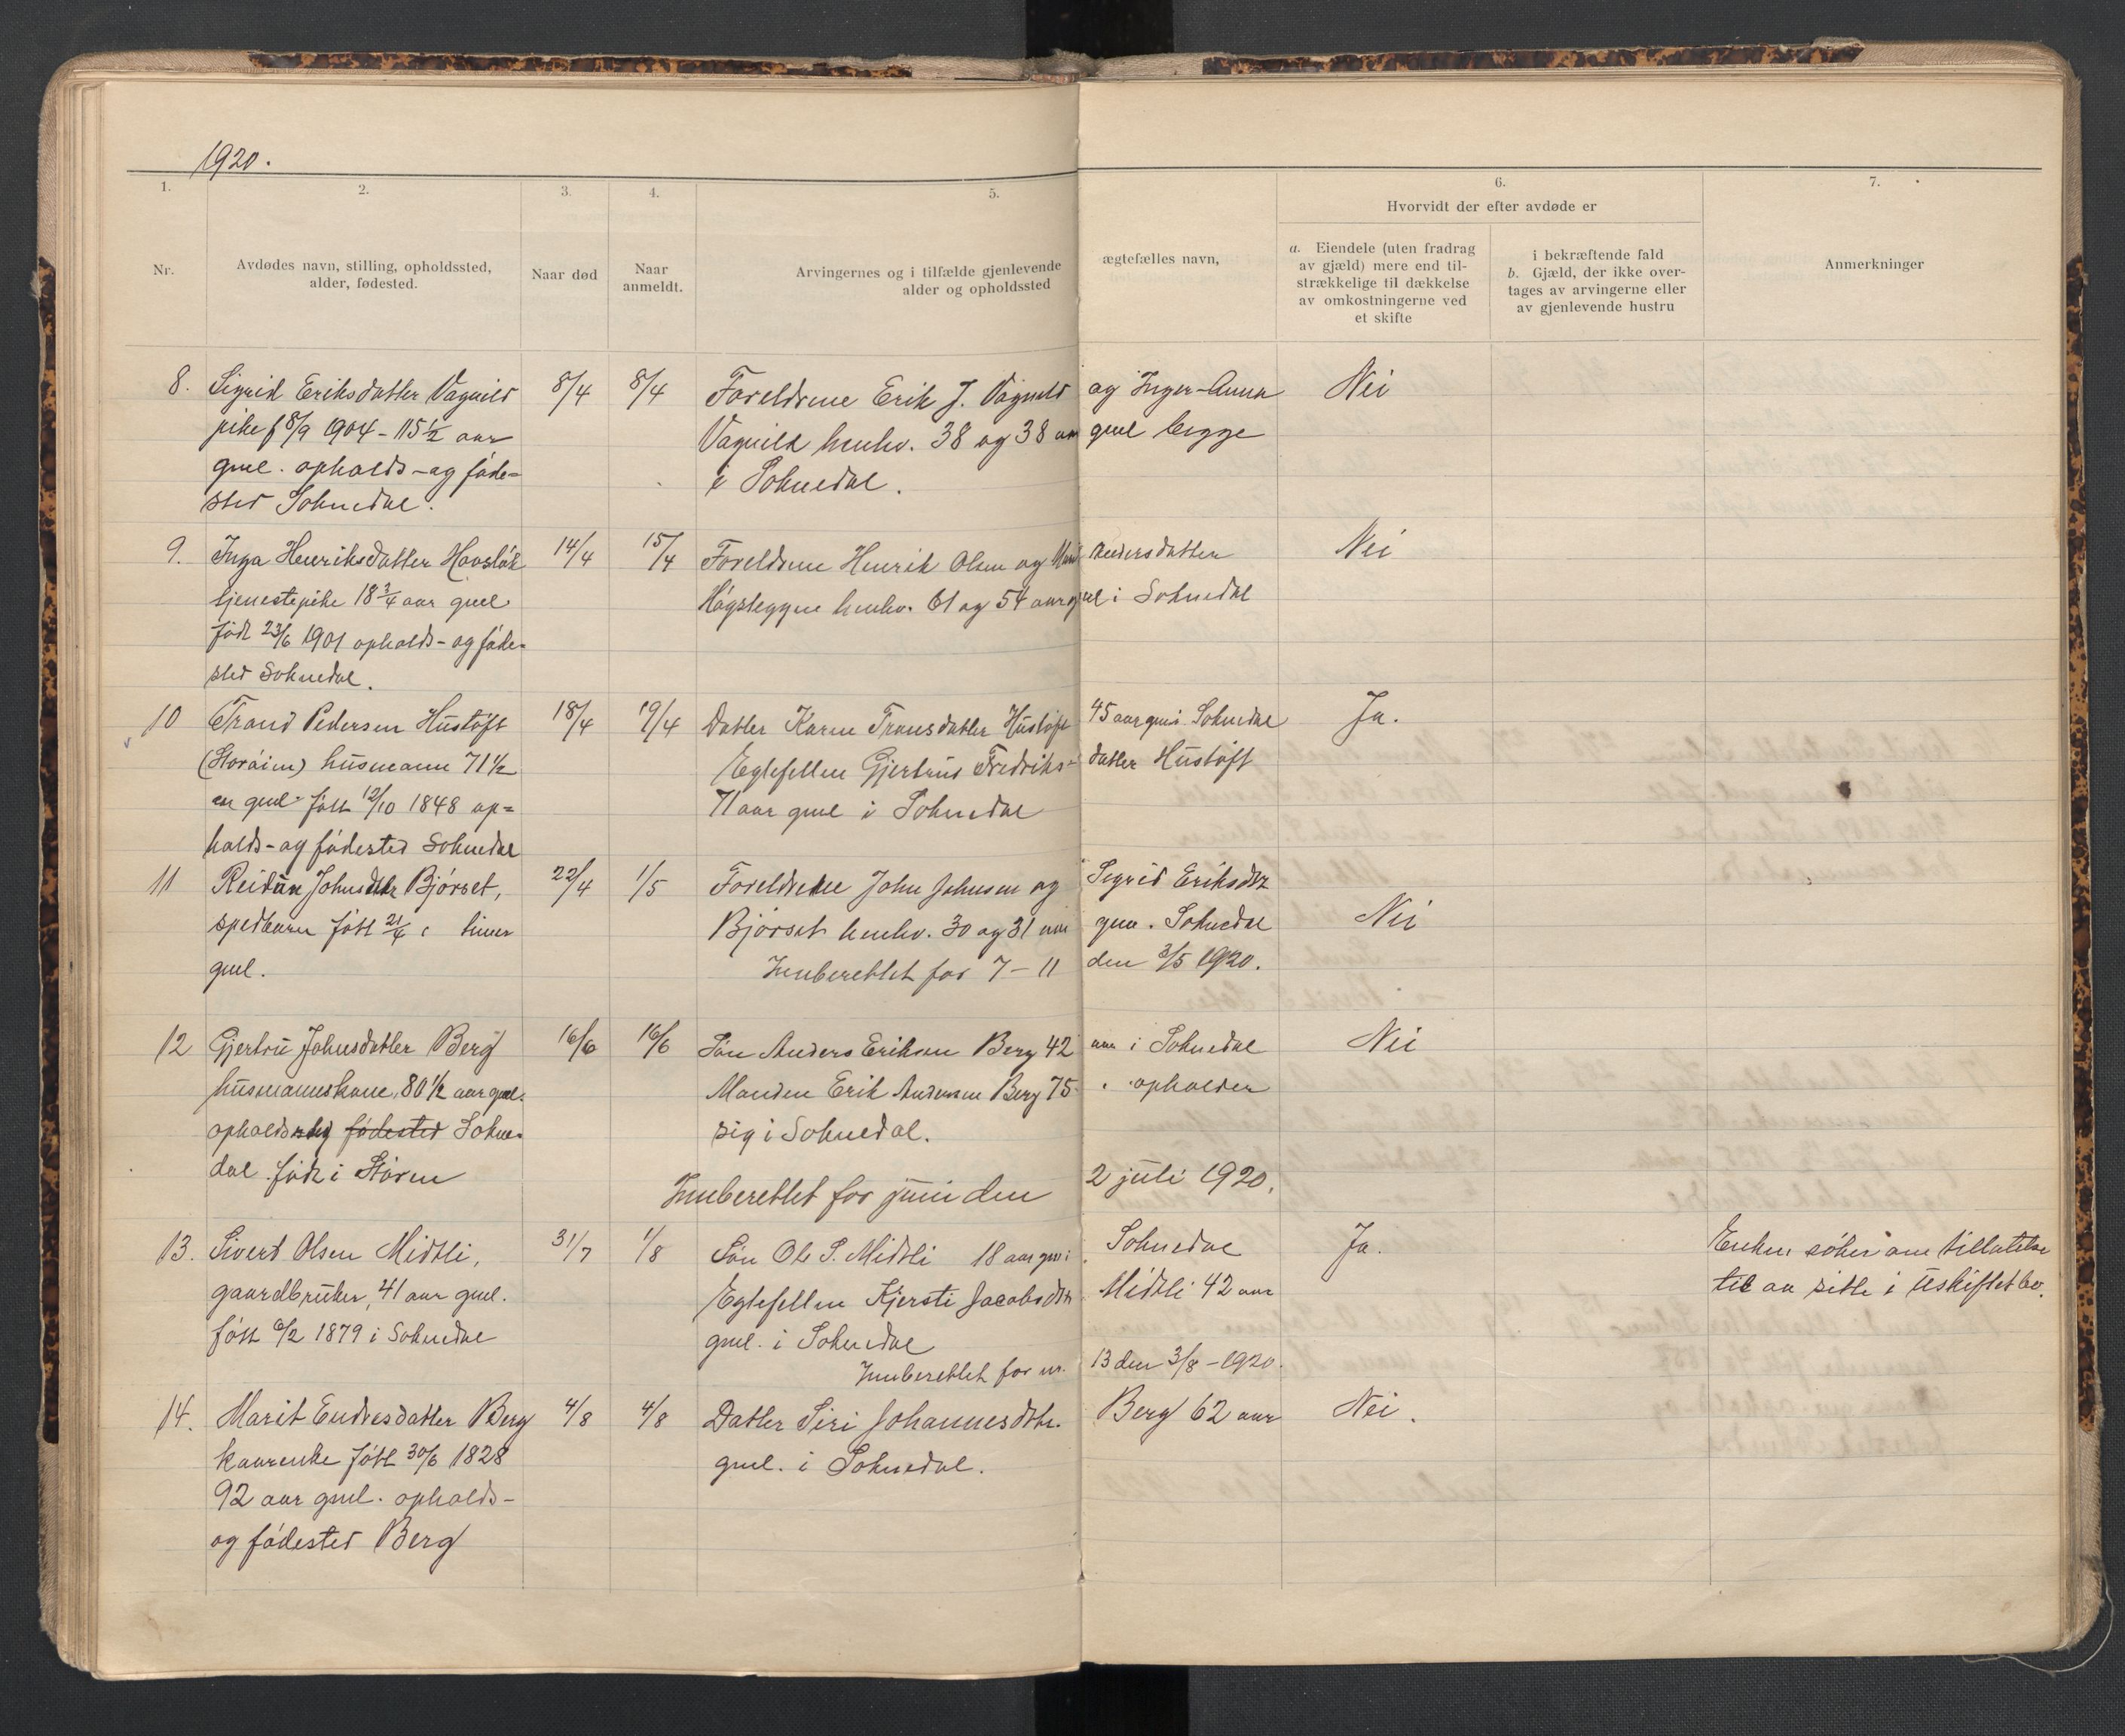 1920.
1. 2. 3. 4. 5. 6. 7.
Hvorvidt der efter avdøde er
Nr.
Avdødes navn, stilling, opholdssted,
alder, fødested.
Naar død
Naar
anmeldt.
Arvingernes og i tilfælde gjenlevende ægtefælles navn,
alder og opholdssted
a. Eiendele (uten fradrag
av gjæld) mere end til-
strækkelige til dækkelse
av omkostningerne ved
et skifte
i bekræftende fald
b. Gjæld, der ikke over-
tages av arvingerne eller
av gjenlevende hustru
Anmerkninger
8. Sigrid Eriksdatter Vagnild 8/4 8/4 Foreldrene Erik J. Vagnild og Inger-Anna Nei
pike f 8/9 1904 - 15 1/2 aar Vagnild henhv. 38 og 38 aar gml begge
gml. opholds- og føde- i Soknedal.
sted Soknedal.
9. Inga Henriksdatter 14/4 15/4 Foreldrene Henrik Olsen og Marit Andersdatter Nei
tjenestepike 18 3/4 aar gml Høgsteggen henhv. 61 og 54 aar gml i Soknedal
født 23/6 1901 opholds- og føde-
sted Soknedal.
10 Trond Pedersen Hustøft 18/4 19/4 Datter Karen Tronsdatter Hustøft 45 aar gml i Soknedal Ja.
(Storåien) husmann 71 1/2 Egtefellen Gjertrud Fredriks- datter Hustøft
aar gml født 12/10 1848 op- 71 aar gml i Soknedal
holds- og fødested Soknedal
11 Reidun Johnsdtr Bjørset, 22/4 1/5 Foreldrene John Johnsen og Sigrid Eriksdtr
spedbarn født 21/4 timer Bjørset henhv. 30 og 31 aar gml. Soknedal Nei
gml. Innberettet for 7 - 11 den 3/5 1920.
12 Gjertru Johnsdatter Berg 16/6 16/6 Søn Anders Eriksen Berg 42 aar i Soknedal Nei
husmannskone, 80 1/2 aar gml. Manden Erik Andersen Berg 75 " opholder
opholdssted fødested Sokne- sig i Soknedal.
dal. født i Støren
Innberettet for juni den 2 juli 1920.
13. Sivert Olsen Midtli, 31/7 1/8 Søn Ole S. Midtli 18 aar gml i Soknedal Ja. Enken søker om tillatelse
gaardbruker, 41 aar gml. Egtefellen Kjersti Jacobsdtr Midtli 42 aar til aa sitte i uskiftet bo.
født 6/2 1879 i Soknedal gml. i Soknedal
Innberettet for nr. 13 den 3/8 - 1920.
14. Marit Endresdatter Berg 4/8 4/8 Datter Siri Johannesdtr. Berg 62 aar Nei.
kaarenke født 30/6 1828 gml. i Soknedal.
92 aar gml. opholds-
og fødested Berg